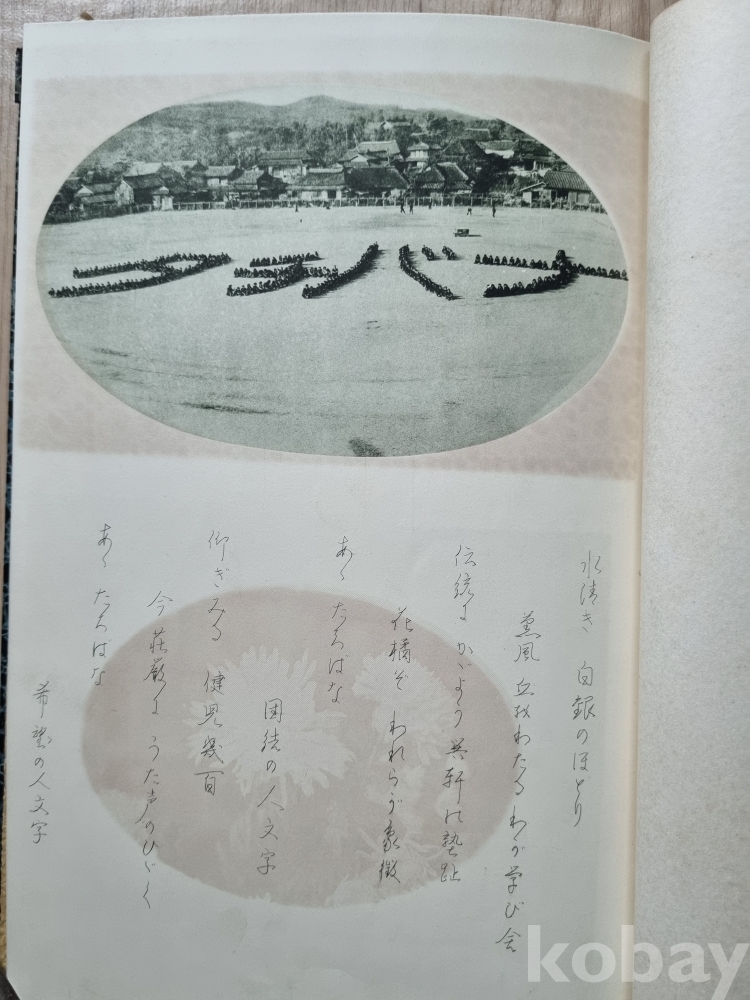 タチバナ
水清き 白銀のほとり
薫風 わたる わが学び舎
伝統に かゞよう 軒の塾趾
花橘ぞ われらが象徴
あゝ たちばな
団結の人文字
仰ぎみる 健児幾百
今荘厳に うた声のひゞく
あゝ たちばな
希望の人文字
kobay